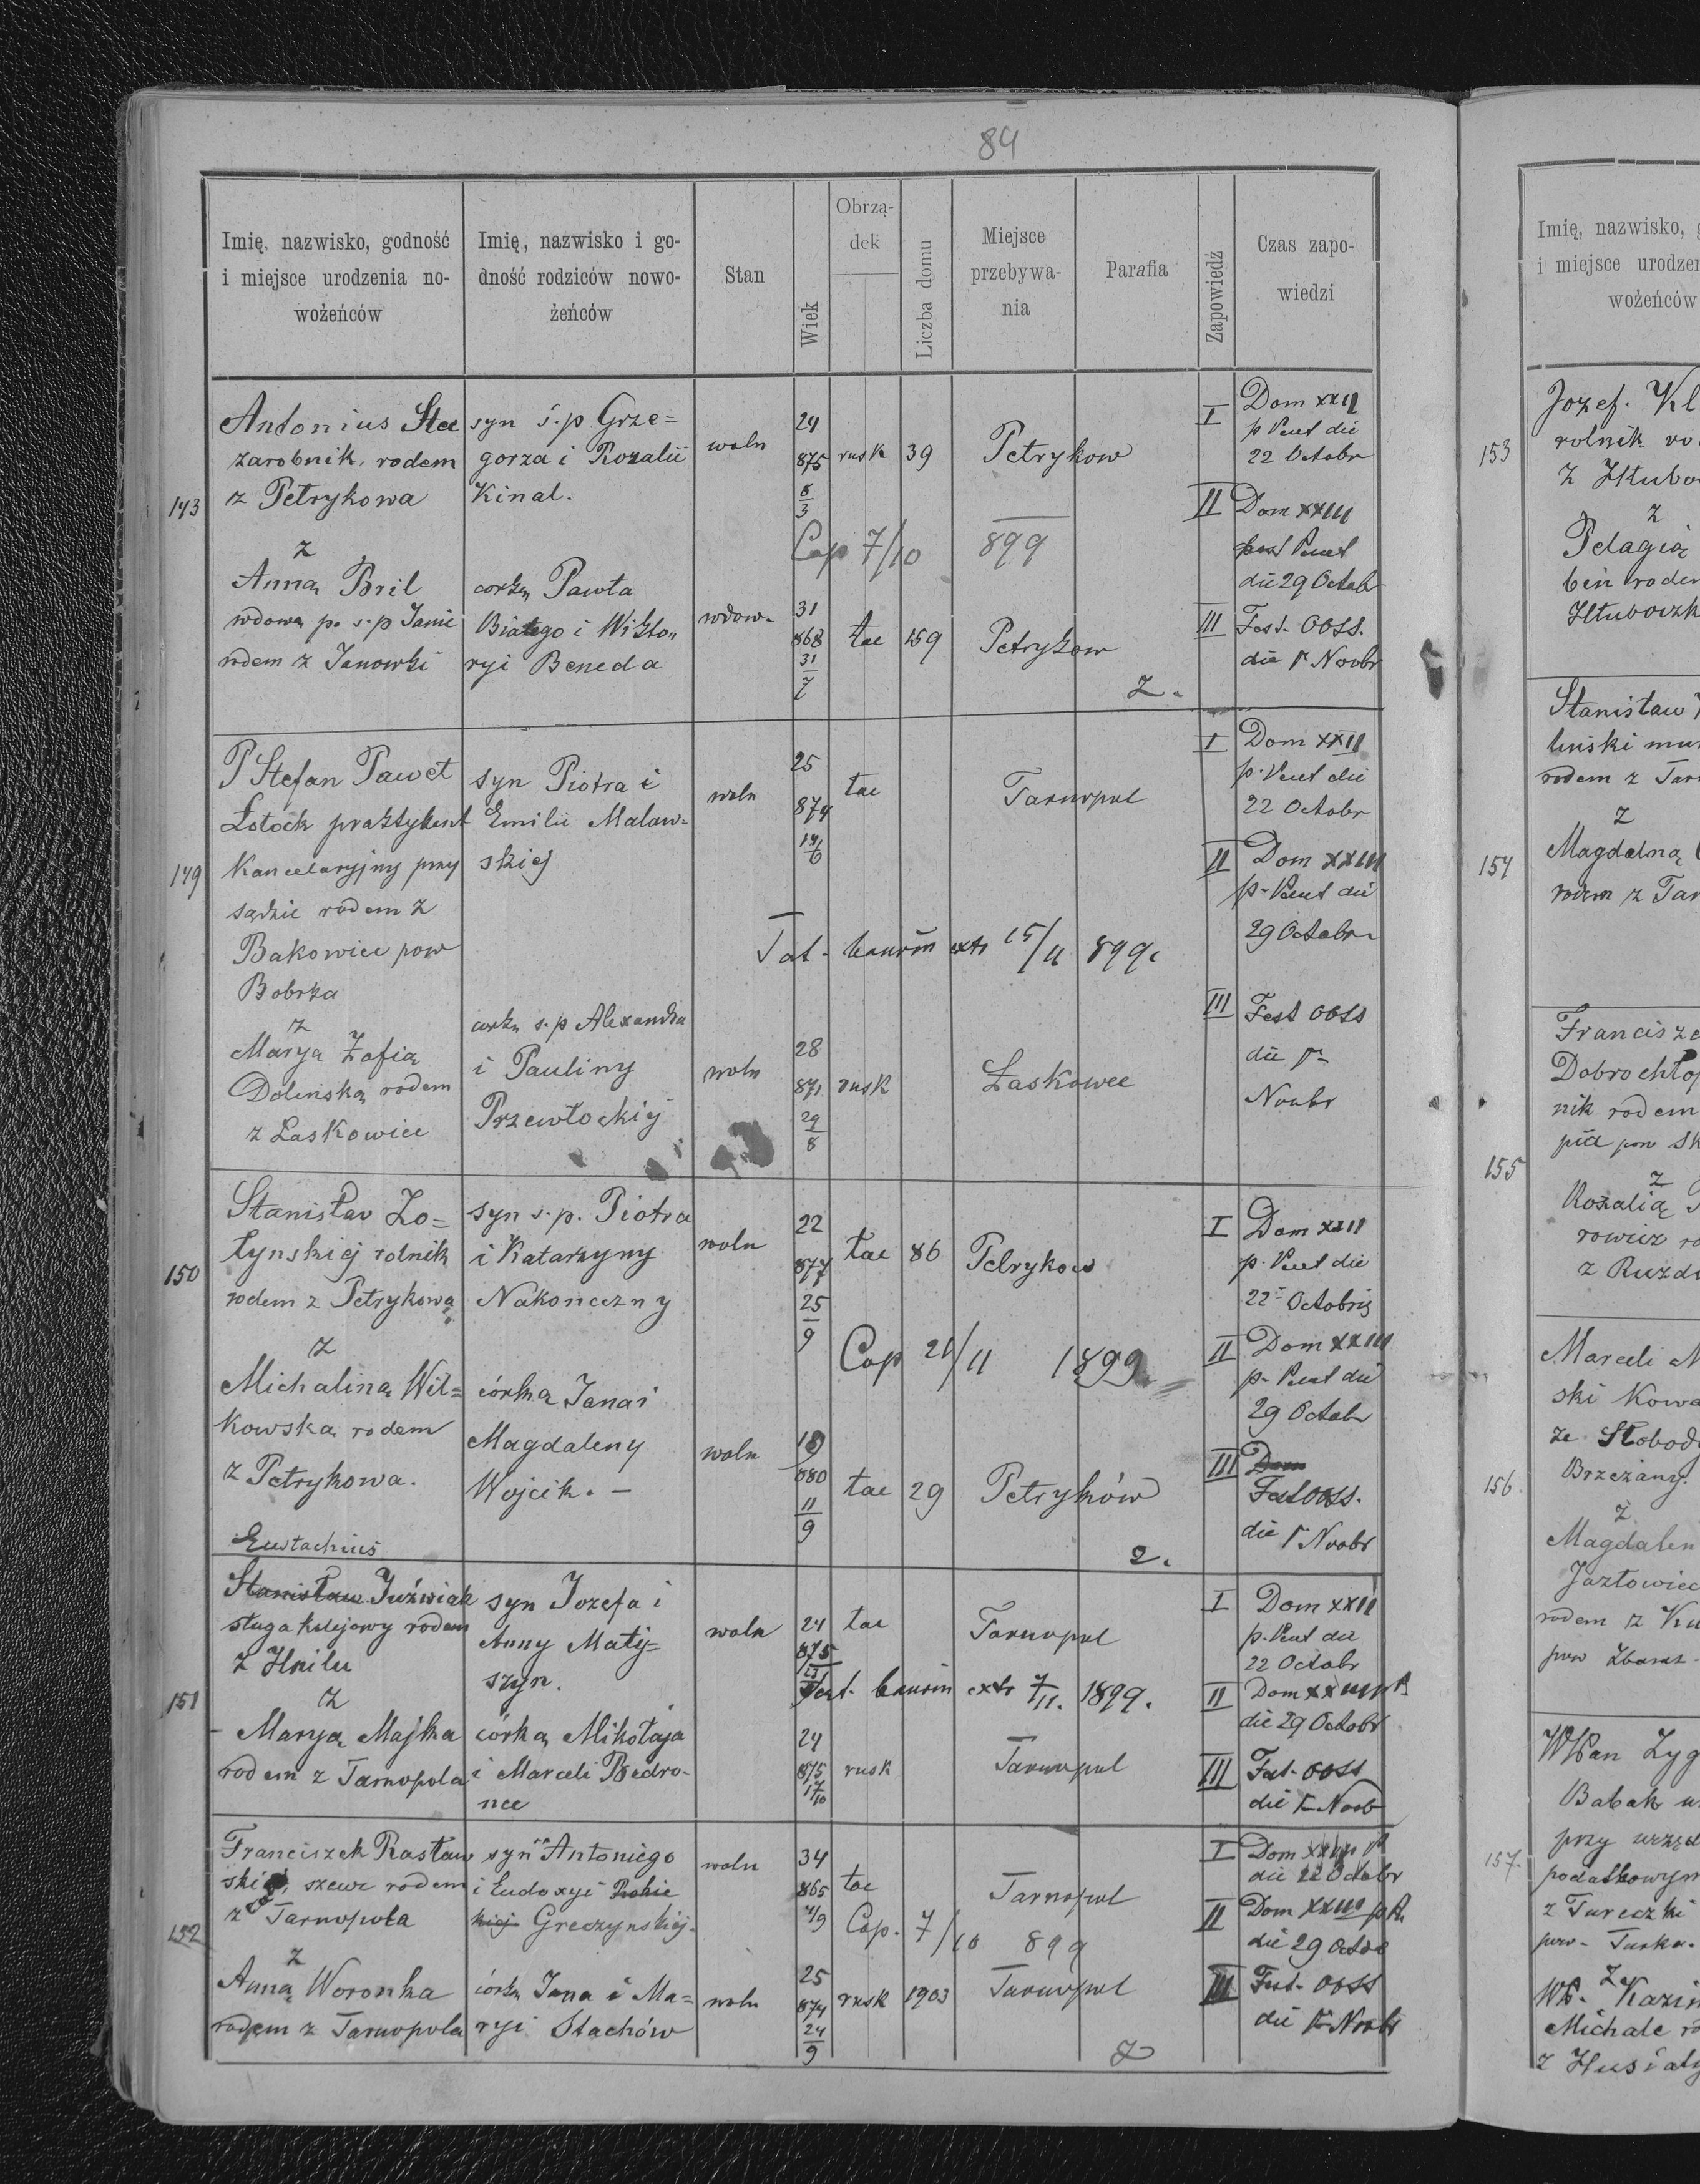 84
Imię, nazwisko, godność
i miejsce urodzenia no-
wożeńców
Imię, nazwisko i go-
dność rodziców nowo-
żeńców
Stan
Wiek
Obrzą-
dek
Liczba domu
Miejsce
przebywa-
nia
Parafia
Zapowiedź
Czas zapo-
wiedzi
Antonius Stec
zarobnik, rodem
z Petrykowa
z
Anną Bril
wdową po s.p Janie
rodem z Janowki
syn ś.p Grze=
gorza i Rozalii
Kinal.
corką Pawła
Białego i Wikto
ryi Beneda
woln
wdow.
24
875
8
3
31
868
31
7
rusk 39 Petrykow
Cop 7/10 899
łac 159 Petrykow
z.
I Dom XXII
p Pent die
22 Octobr
II Dom XXIII
post Pent
die 29 Octobr
III Fest. OOSS.
die 1 Novbr
149
P Stefan Paweł
Łotock praktykant
Kancelaryjny przy
sądzie rodem z
Bakowice pow
Bobrka
z
Marya Zofią
Dolinską rodem
z Laskowice
syn Piotra i
Emilii Malaw=
skiej
corką s.p Alexandra
i Pauliny
Przewłockiej
woln
woln
25
874
14
6
28
871
29
8
łac Tarnopol
extr 15/11 899.
rusk Laskowce
I Dom XXII
p. Pent die
22 Octobr
II Dom XXIII
p. Pent die
29 Octobr
III Fest OOSS
die 1
Novbr
150
Stanisław Zo=
łynskiej rolnik
rodem z Petrykowa
z
Michaliną Wil=
kowska rodem
z Petrykowa.
syn s.p. Piotra
i Katarzyny
Nakoneczny
córką Jana i
Magdaleny
Wojcik. -
woln
woln
22
877
25
9
19
880
11
9
łac 86 Petrykow
Cop 21/11 1899
łac 29 Petryków
2.
I Dom XXII
p. Pent die
22 Octobris
II Dom XXIII
p. Pent die
29 Octobr
III Dom
Fest OOSS.
die 1 Novbr
151
Eustachius
Stanisław Juźwiak
sługa kolejowy rodem
z Hnilu
z
Maryą Majka
rodem z Tarnopola
syn Jozefa i
Anny Maty=
szyn.
córką Mikołaja
i Marceli Bedro-
nce
woln
24
875
24
875
17
10
łac Tarnopol
extr 7/11. 1899.
rusk Tarnopol
I Dom XXII
p. Pent die
22 Octobr
II Dom XXIII p P.
die 29 Octobr
III Fest. OOSS
die 1 Novb
152
Franciszek Rasław
ski, szewc rodem
z Tarnopola
z
Anną Woronka
rodem z Tarnopola
syn Antoniego
i Ludoxyi
Greczynskiej.
córką Jana i Ma=
ryi Stachów
woln
woln
34
865
4/9
25
874
24
9
łac Tarnopol
Cop. 7/10 899
rusk 1903 Tarnopol
I
die 22 Octobr
II Dom XXIII p P.
die 29 Octob
III Fest. OOSS
die 1 Novbr
Imię, nazwisko,
i miejsce urodzen
wożeńców
153
Jozef. Kl
rolnik ro
z
Pelagią
154
Stanisław
rodem z Tar
z
Magdalną
rodem z Tar
155
Francisze
Dobrochłop
nik rodem
z
Rozalią
156
Marceli
ski Kowa
ze Słobod
Brzeżany.
z
Magdalen
Jazłowiec
rodem z Ku
pow Zbaraz
157.
WPan Zyg
Babak
przy urzęd
podatkowym
z Tureczki
pow. Turka.
z
WP. Kazim
Michale
z Husiaty